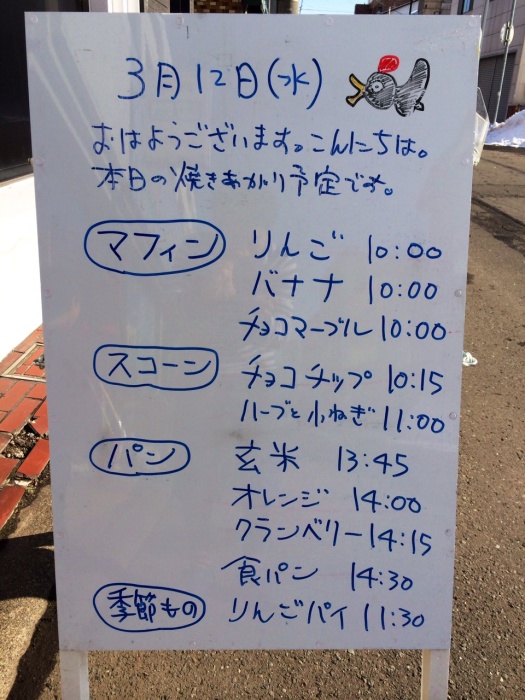 3月12日(水)
おはようございます。こんにちは。
本日の焼きあがり予定です。
マフィン りんご 10:00
バナナ 10:00
チョコマーブル 10:00
スコーン チョコチップ 10:15
ハーブと小ねぎ 11:00
パン 玄米 13:45
オレンジ 14:00
クランベリー 14:15
食パン 14:30
季節もの りんごパイ 11:30